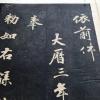 依前件
大曆三年
奉
勅如右